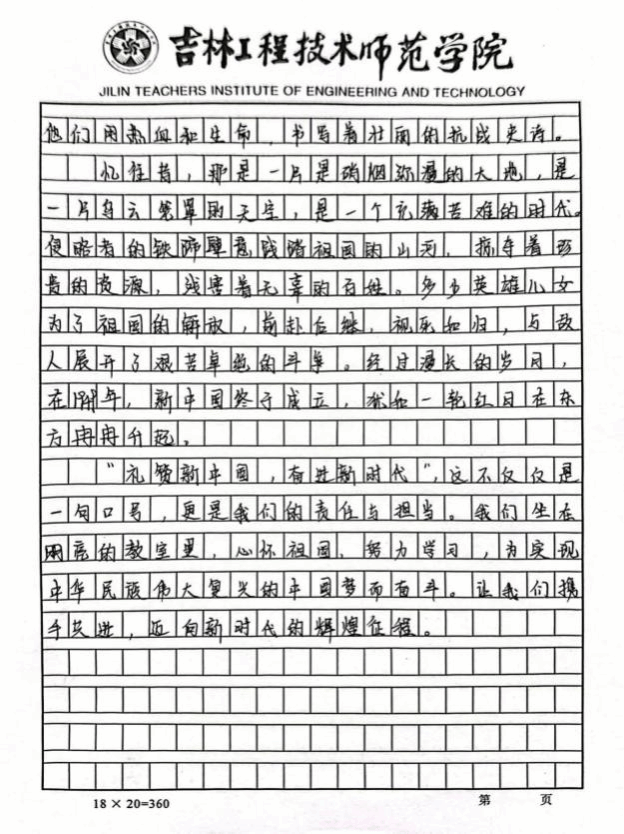 吉林工程技术师范学院
JILIN TEACHERS INSTITUTE OF ENGINEERING AND TECHNOLOGY
他们用热血和生命,书写着壮丽的抗战史诗。
忆往昔,那是一片是硝烟弥漫的大地,是
一片乌云笼罩的天空,是一个充满苦难的时代。
侵略者的铁蹄肆意践踏祖国的山河,掠夺着珍
贵的资源,残害着无辜的百姓。多少英雄儿女
为了祖国的解放,前赴后继,视死如归,与敌
人展开了艰苦卓绝的斗争。经过漫长的岁月,
在1949年,新中国终于成立,犹如一轮红日在东
方冉冉升起。
“礼赞新中国,奋进新时代”,这不仅仅是
一句口号,更是我们的责任与担当。我们坐在
明亮的教室里,心怀祖国,努力学习,为实现
中华民族伟大复兴的中国梦而奋斗。让我们携
手共进,迈向新时代的辉煌征程。
18 × 20=360
第 页